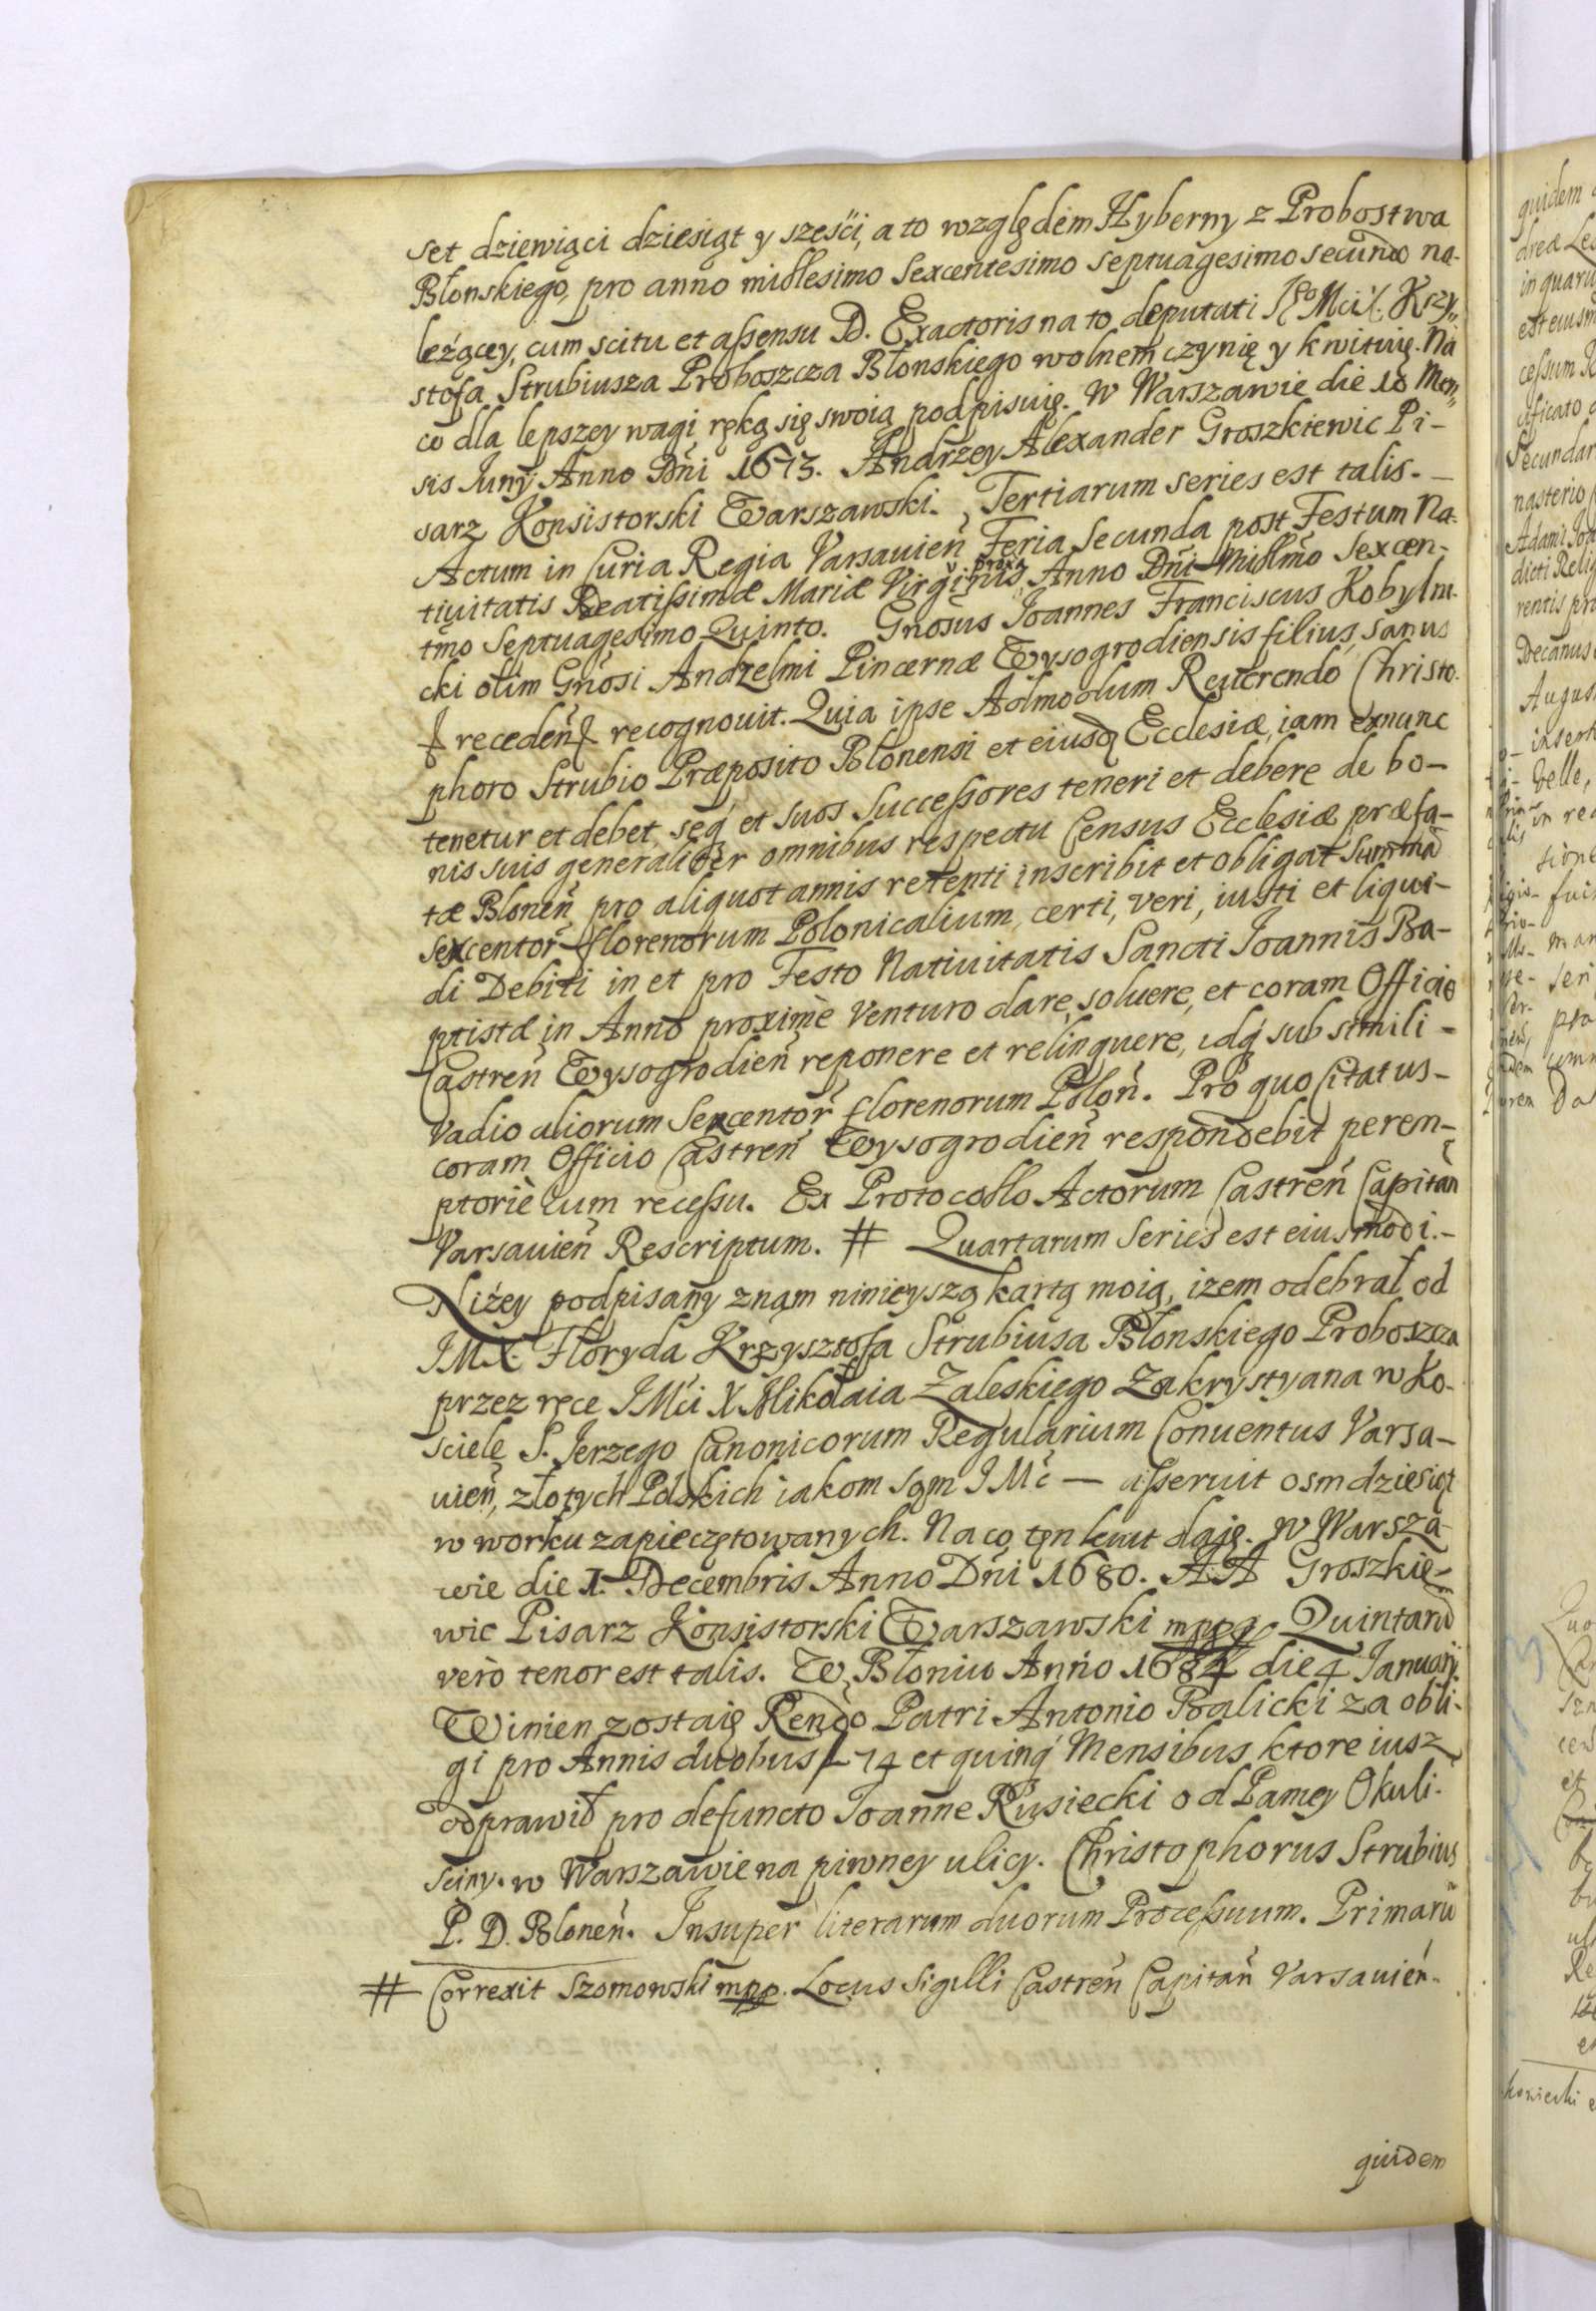 set dziewiąci dziesiąt y sześći, a to względem Hyberny z Probostwa
Błonskiego, pro anno millesimo Sexcentesimo Septuagesimo secundo na-
leźącey, cum scitu et assensu D. Exactoris na to deputati Kszy„
stofa Strubiusza Proboszcza Błonskiego wolnem czynię y kwituię. Na
co dla lepszey wagi ręką się swoią podpisuię. W Warszawie die 10 Men„
sis Iunij Anno Dñi 1673. Andrzey Alexander Groszkiewic Pi-
sarz Konsistorski Warszawski. Tertiarum series est talis. -
Actum in Curia Regia Varsauieñ Feria Secunda post Festum Na-
tiuitatis Beatissimæ Mariæ Virginis proxa Anno Dñi Millmo Sexcen-
tmo Septuagesimo Quinto. Gnosus Ioannes Franciscus Kobylni-
cki olim Gnosi Andzelmi Pincernæ Wysogrodiensis filius, sanus
receden recognouit. Quia ipse Admodum Reuerendo Christo-
phoro Strubio Præposito Blonensi et eiusq Ecclesiæ, iam exnunc
tenetur et debet, seq et suos Successores teneri et debere de bo-
nis suis generaliter omnibus respectu Census Ecclesiæ præfa-
tæ Bloneñ pro aliquot annis retenti inscribit et obligat Summa
sexcentor florenorum Polonicalium, certi, veri, iusti et liqui-
di Debiti in et pro Festo Natiuitatis Sancti Ioannis Ba-
ptistæ in Anno proximè Venturo dare, soluere, et coram Officio
Castreñ Wysogrodieñ reponere et relinquere, idq sub simili -
Vadio aliorum Sexcentor florenorum Poloñ. Pro quo Citatus -
coram Officio Castreñ Wysogrodieñ respondebit perem-
ptoriè cum recessu. Ex Protocollo Actorum Castreñ Capitañ
Varsauieñ Rescriptum. # Quartarum Series est eiusmodi. -
Niźey podpisany znam ninieyszą kartą moią, izem odebrał od
IMX. Floryda Krzysztofa Strubiusa Błonskiego Proboszcza
przez ręce IMći X Mikołaia Zaleskiego Zakrystyana w Ko-
sciele S. Jerzego Canonicorum Regularium Conuentus Varsa-
uieñ, złotych Polskich iakom sąm IMć — asseruit osmdziesiąt
w worku zapieczętowanych. Na co tęn kwit daię. W Warsza-
wie die 1. Decembris Anno Dñi 1680. A.A Groszkie-
wic Pisarz Konsistorski Warszawski mppa Quintaru
verò tenor est talis. W Błoniu Anno 1684 die 4 Ianuarij
Winien zostaię Rendo Patri Antonio Balicki za obli-
gi pro Annis duobus 74 et quinq Mensibus ktore iusz
odprawił pro defuncto Ioanne Rusiecki od Pamey Okuli-
sciny. w Warszawie na piwney ulicy. Christophorus Strubius
P. D. Bloneñ. Insuper literarum duorum Processuum. Primarū
# Correxit Szomowski mpp. Locus Sigilli Castreñ Capitañ Varsauień.
quidem